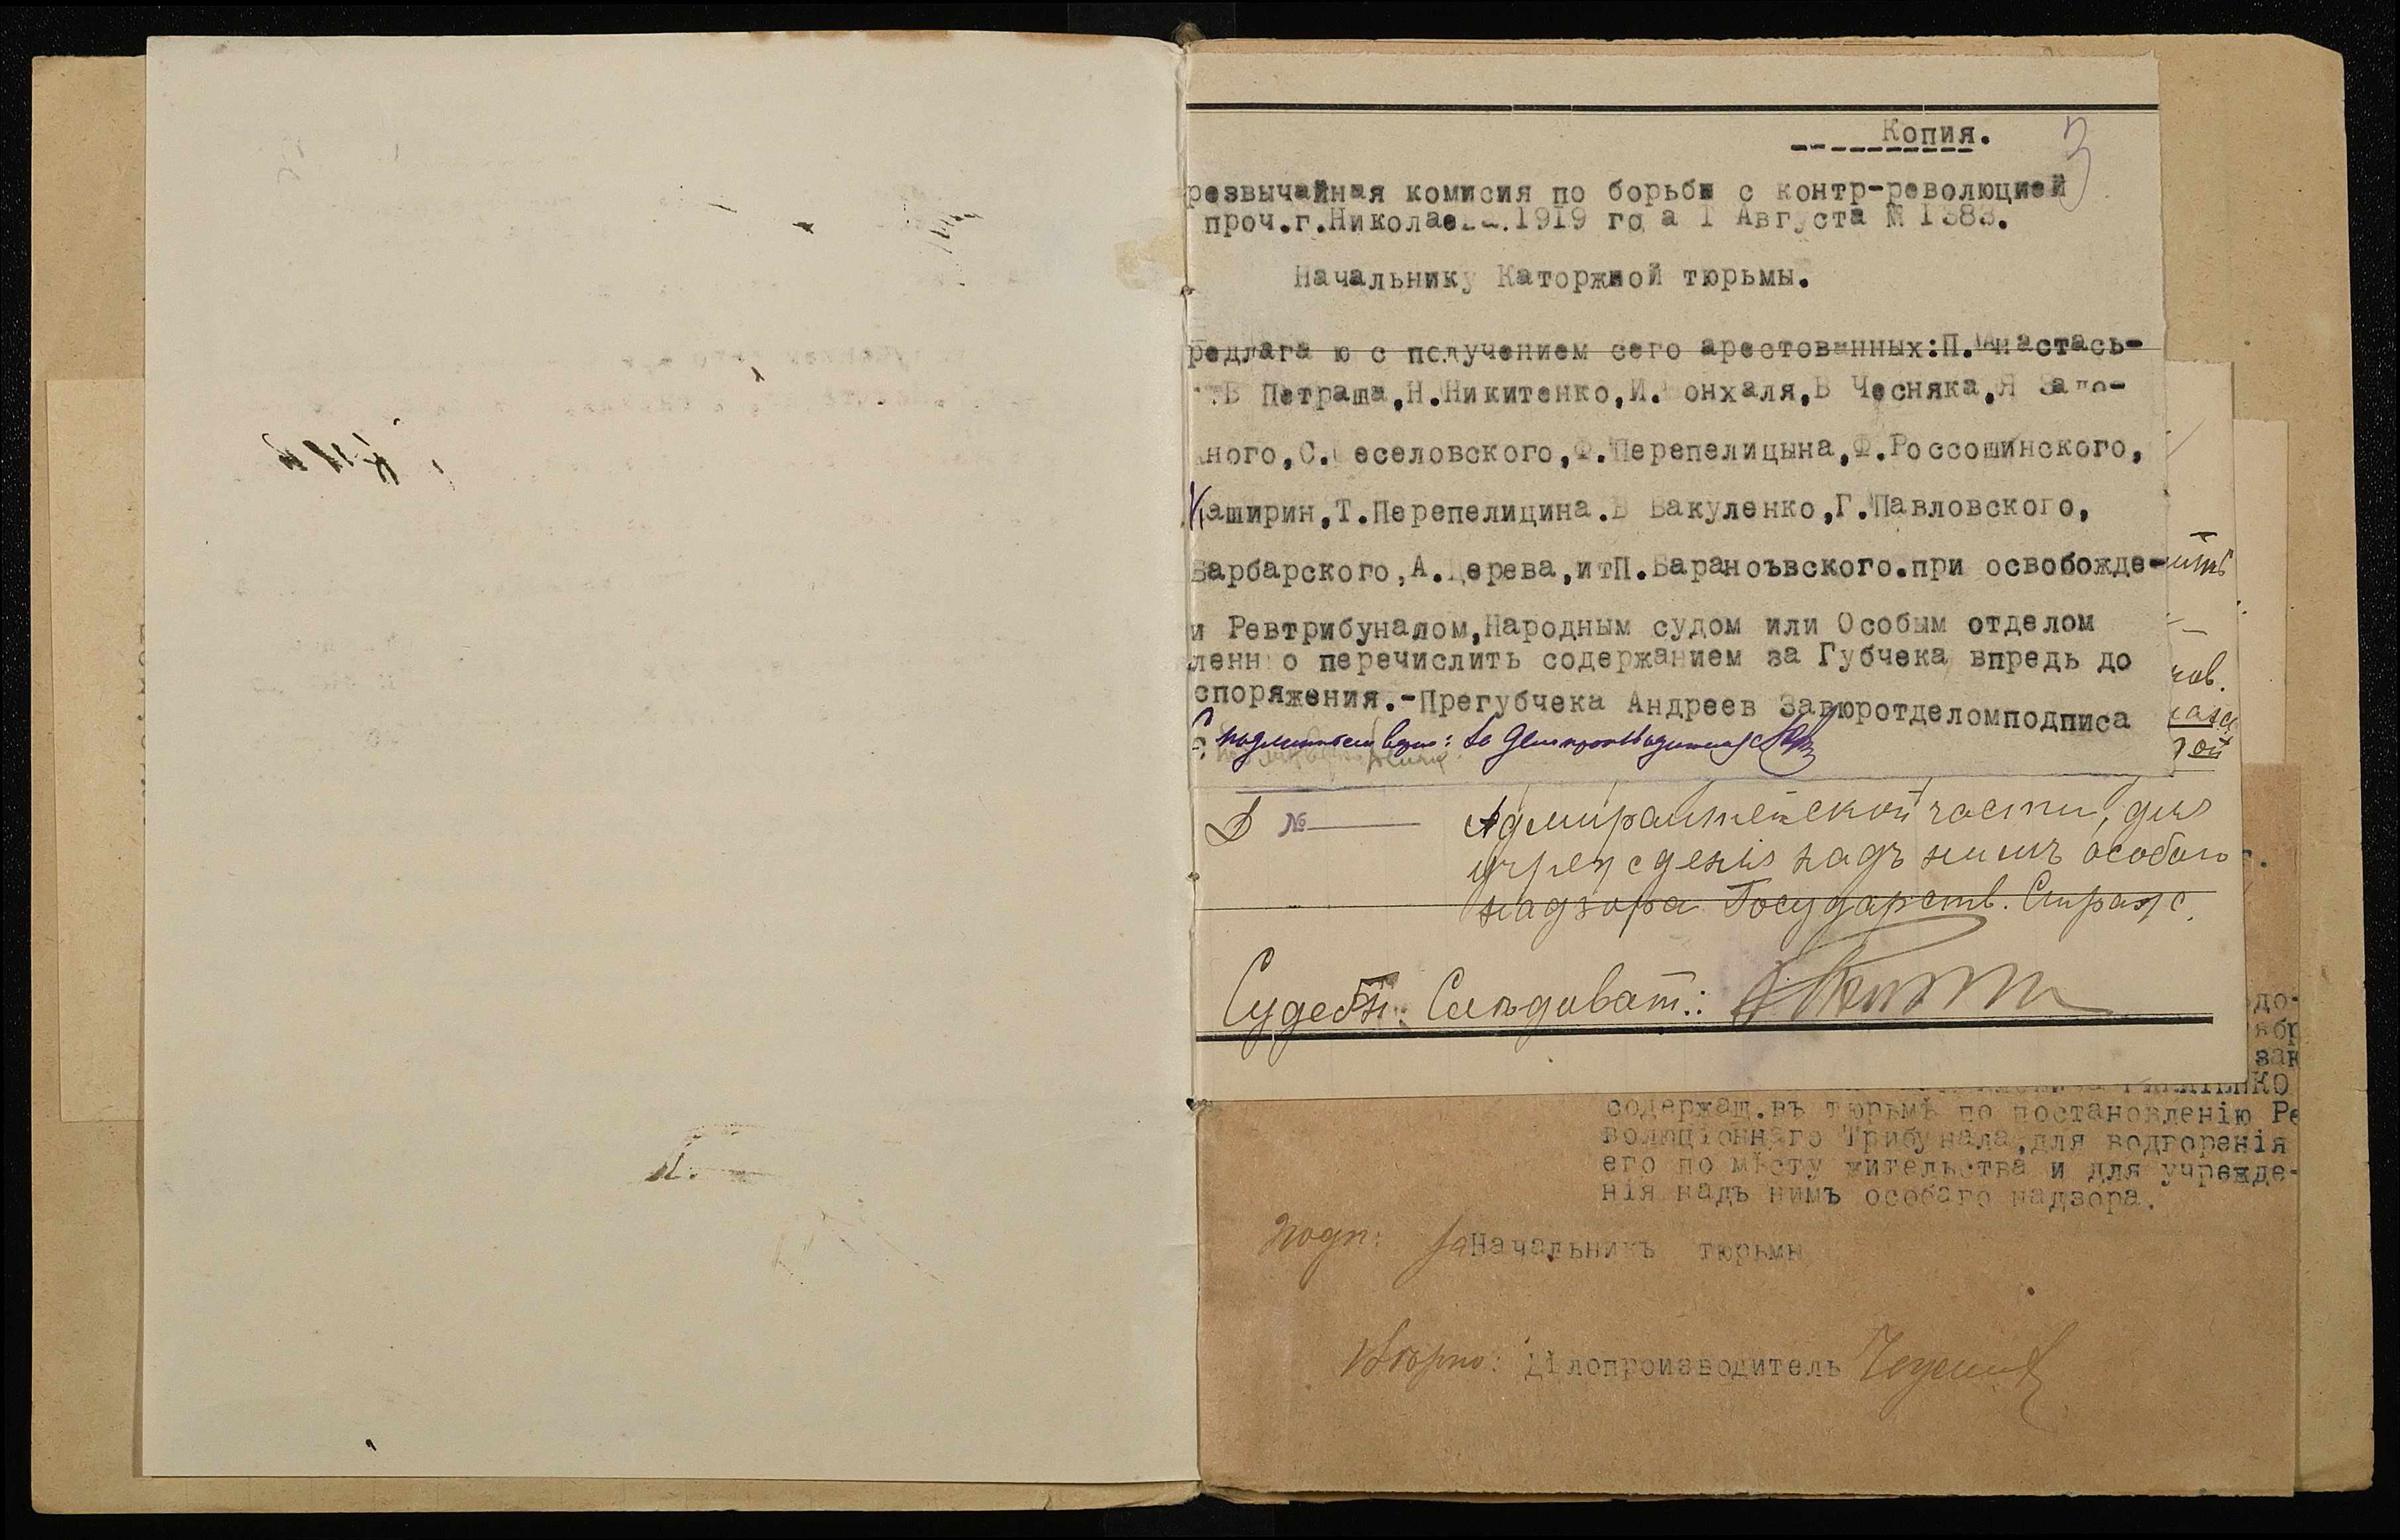 Копия.
3
резвычайная комисия по борьбе с контр-революцией
проч.г.Николаева.1919 го а 1 Августа № 1383.
Начальнику Каторжной тюрьмы.
редлага ю с получением сего арестованных:П.Анастась-
В Петраша,Н.Никитенко,И. онхаля,В Чесняка,Я Запо-
ного,С. еселовского,Ф.Перепелицына,Ф.Россошинского,
Каширин,Т.Перепелицина.В Вакуленко,Г.Павловского,
Варбарского,А.Дерева,итП.Бараноъвского.при освобожде-
и Ревтрибуналом,Народным судом или Особым отделом
ленн о перечислить содержанием за Губчека впредь до
споряжения.-Прегубчека Андреев Завюротделомподписа
С подлинным верно: Делопроизводитель
№ Адмиралтейской части, для
учрежденія надъ нимъ особаго
надзора Государств. Страж.
Судебн. Следоват.:
до-
ябр
зак
содержащ.въ тюрьмѣ по постановленію Ре
волюціоннаго Трибунала,для водворенія
его по мѣсту жительства и для учрежде-
нія надъ нимъ особаго надзора.
подп: за Начальникъ тюрьмы
Вѣрно: Дѣлопроизводитель